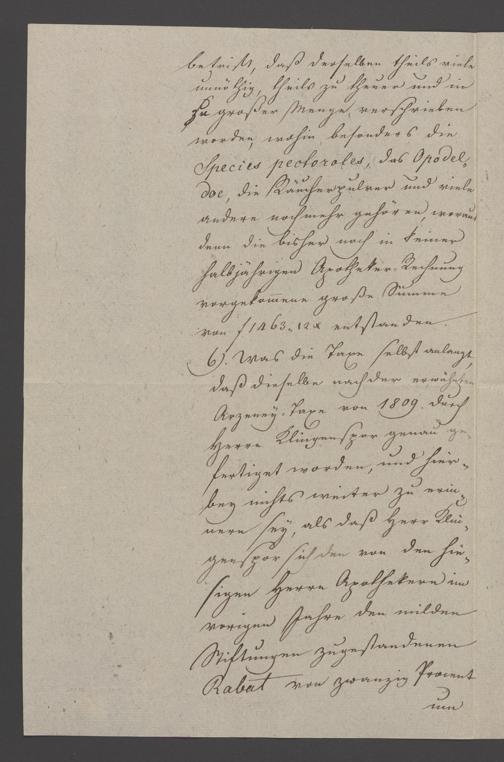 betrift, daß derselben theils viele
unnöthig, theils zu theuer und in
zu großer Menge, verschrieben
worden, wohin besonders die
Species pectorales, das Opodel-
doc, die Räucherpulver und viele
andere noch mehr gehören, woraus
denn die bisher noch in keiner
halbjährigen Apotheker-Rechnung
vorgekom̄ene große Summe
von f 1463„12 x entstanden.
6). Was die Taxe selbst anlangt,
daß dieselbe nach der erwähnten
Arzeney-Taxe von 1809. durch
Herrn Klingenspor genau ge-
fertiget worden, und hier-
bey nichts weiter zu erin-
nern sey, als daß Herr Klin-
genspor sich den von den hie-
sigen Herrn Apothekern im
vorigen Jahre den milden
Stiftungen zugestandenen
Rabat von zwanzig Procent